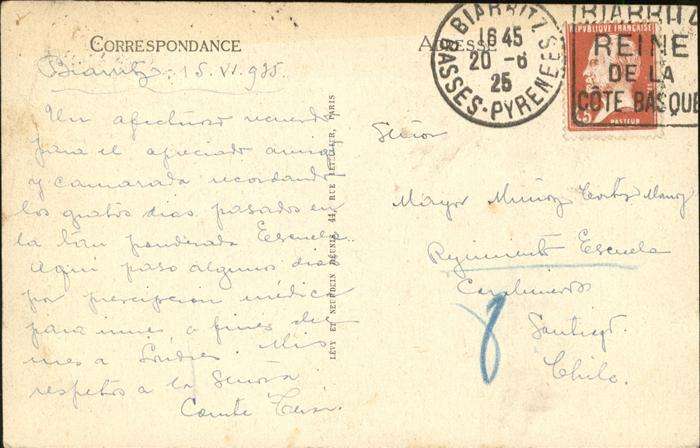 CORRESPONDANCE
Biarritz. 15. VI. 925.
Un afectuoso recuerdo
para el apreciado amigo
y camarada recordando
los gratos dias pasados en
la tan ponderada Escuela.
Aqui paso algunos dias
por medica
para irme a fines del
mes a Londres. Mis
respetos a la Señora
LÉVY ET NEURDEIN RÉUNIS, 44, RUE LETELLIER, PARIS
ADRESSE
BIARRITZ
16 45
20 -6
25
BASSES-PYRENEES
BIARRITZ
REINE
DE LA
CÔTE BASQUE
REPUBLIQUE FRANÇAISE
PASTEUR
Señor
Mayor Muñoz
Regimiento Escuela
Carabineros
Santiago.
Chile.
8